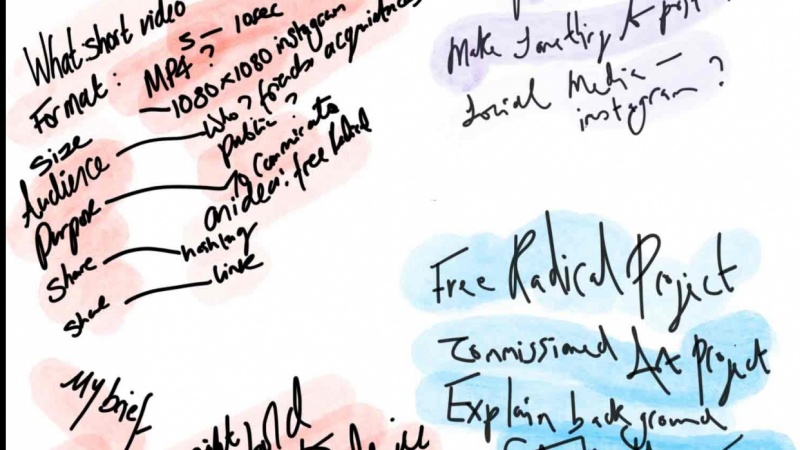 What short video
5 - 10sec
Format: MP4?
Size — 1080x1080 instagram
Audience — Who? friends acquaintances
public?
Purpose — To Communicate
an idea: free Radical
Share — hashtag
Share — link
My brief
Make Something to post
Social Media —
instagram?
Free Radical Project
Commissioned Art project
Explain background